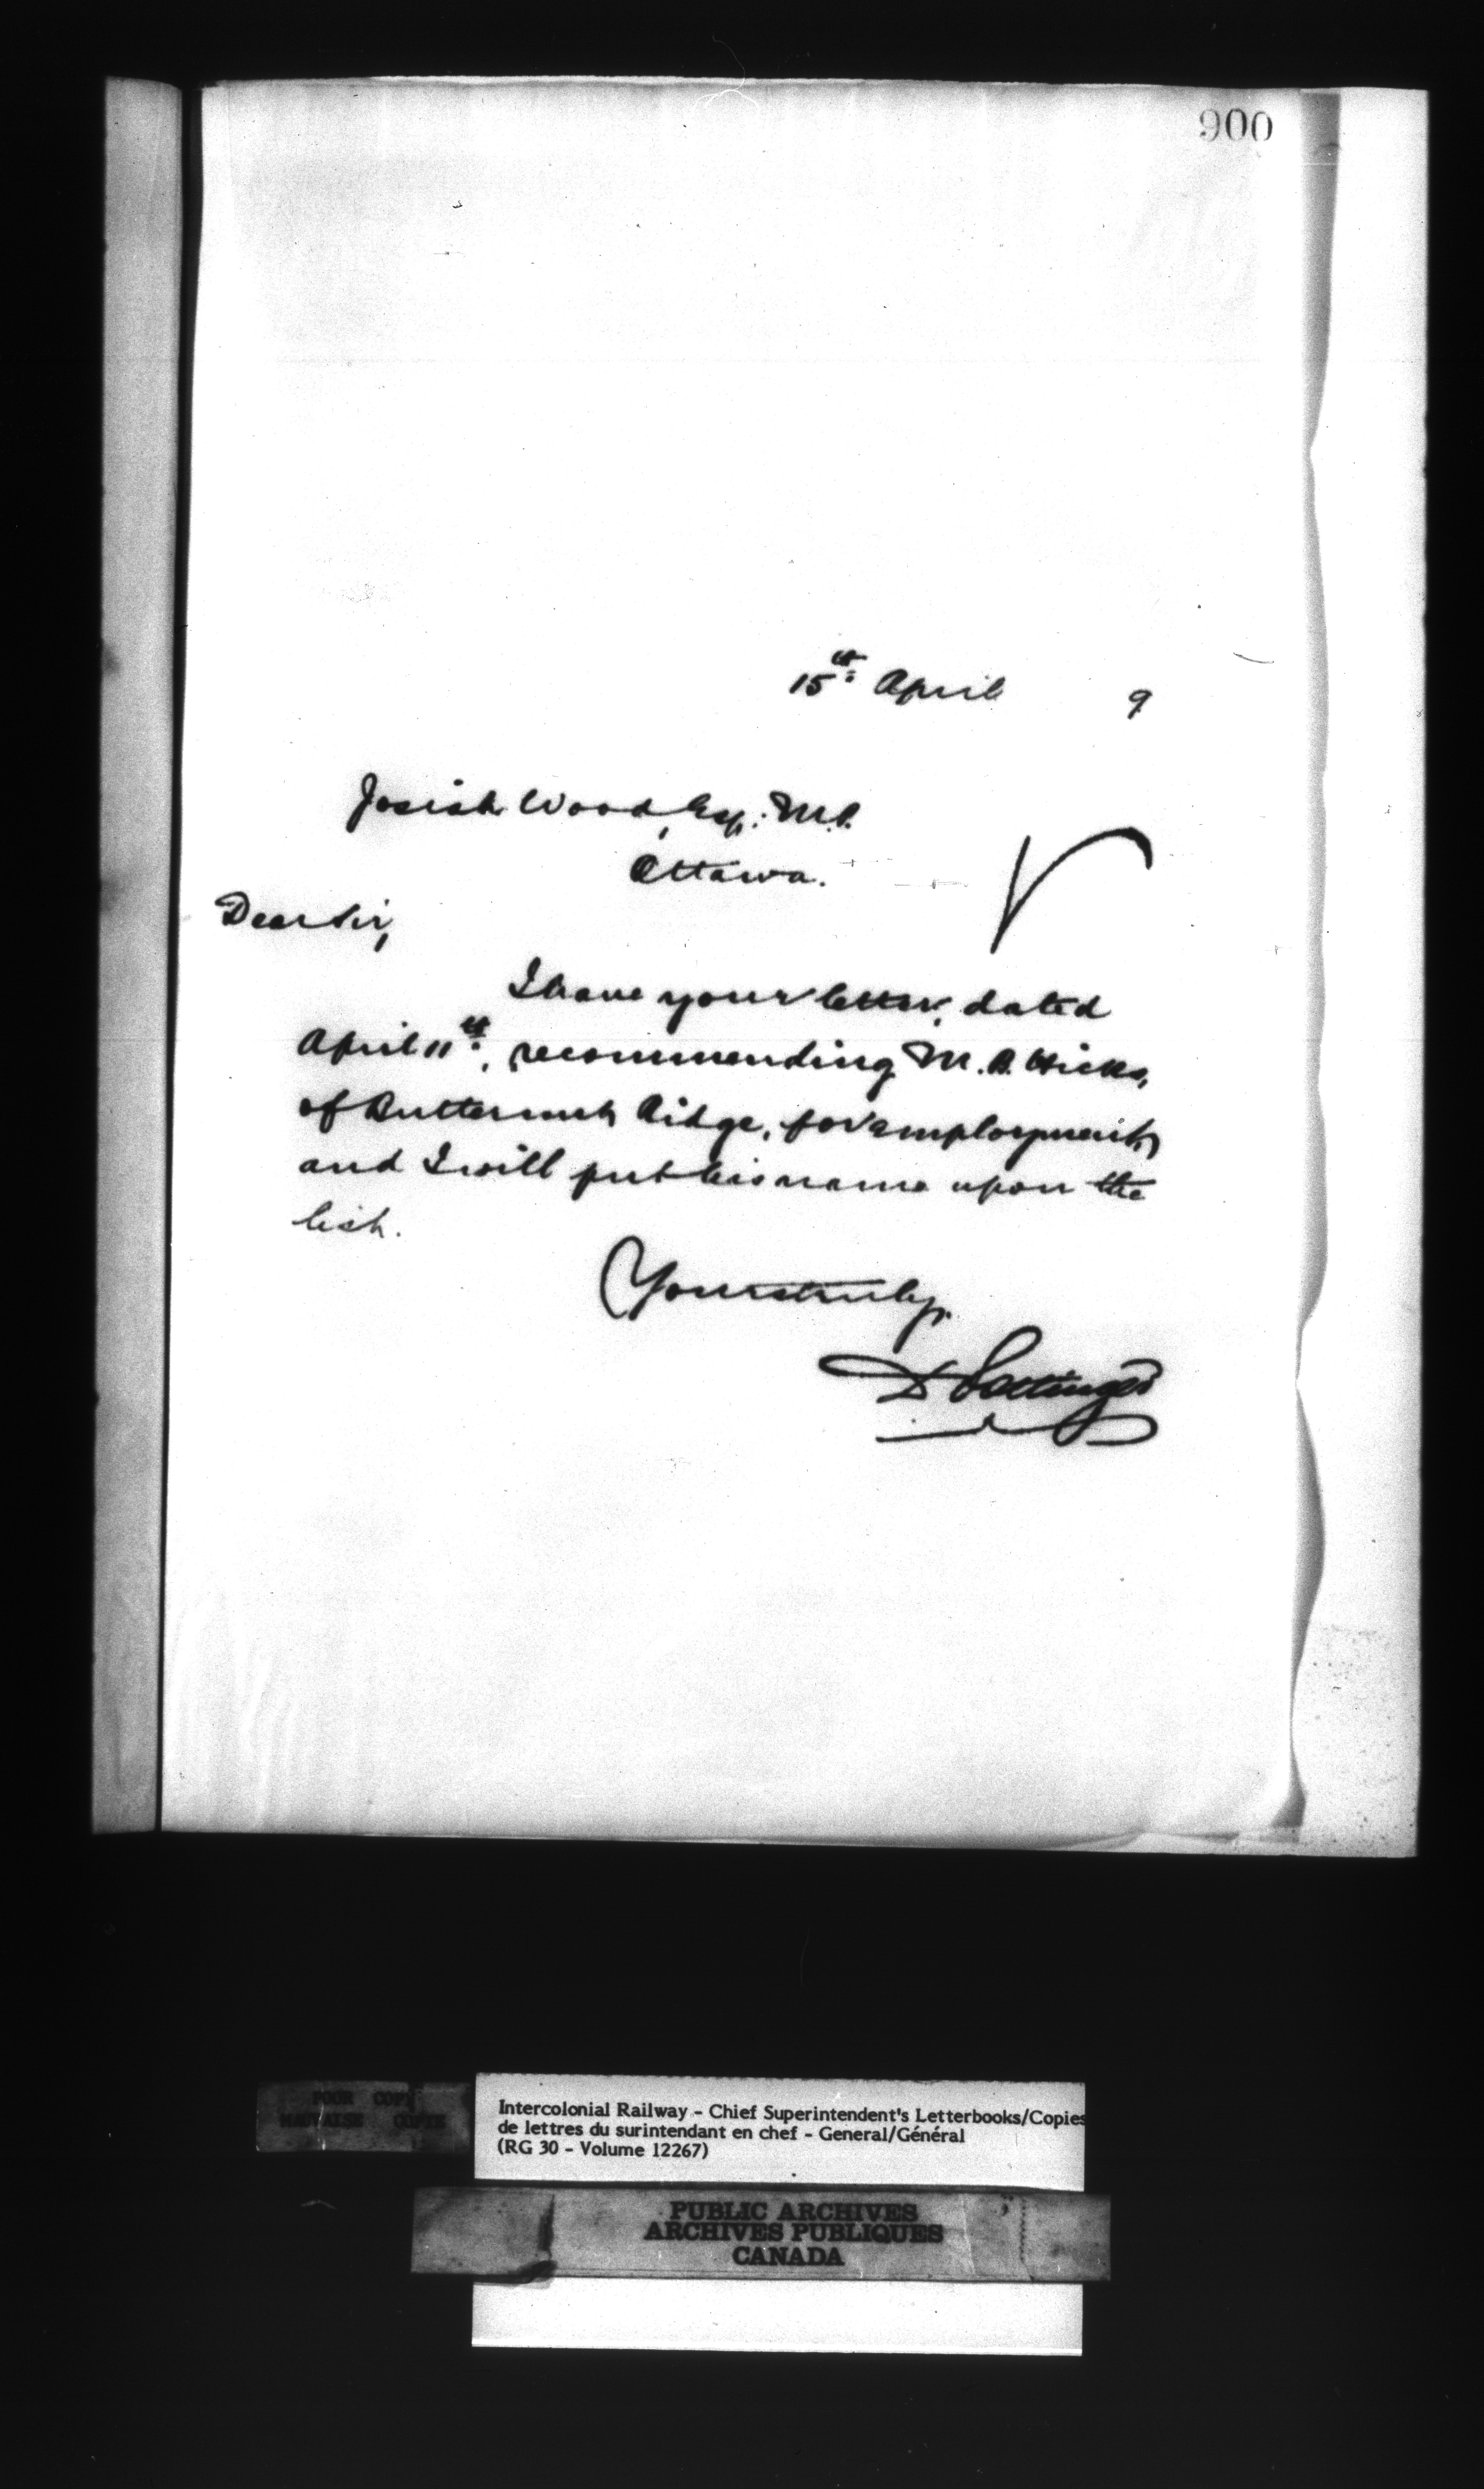 900
15th April 9
Josiah Wood, Esq: M.P.
Ottawa.
Dear Sir,
I have your letter, dated
April 11th, recommending M. B. Hicks,
of Butternut Ridge, for employment,
and I will put his name upon the
list.
Yours truly,
D Pottinger
POOR COPY
MAUVAISE COPIE
Intercolonial Railway - Chief Superintendent's Letterbooks/Copies
de lettres du surintendant en chef - General/Général
(RG 30 - Volume 12267)
PUBLIC ARCHIVES
ARCHIVES PUBLIQUES
CANADA